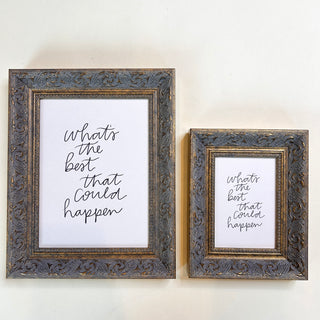 what's
the
best
that
could
happen
what's
the
best
that
could
happen